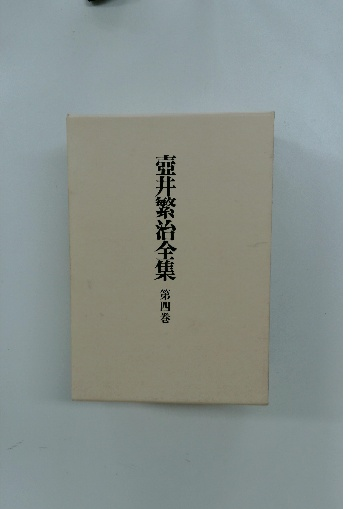 壺井繁治全集 第四巻